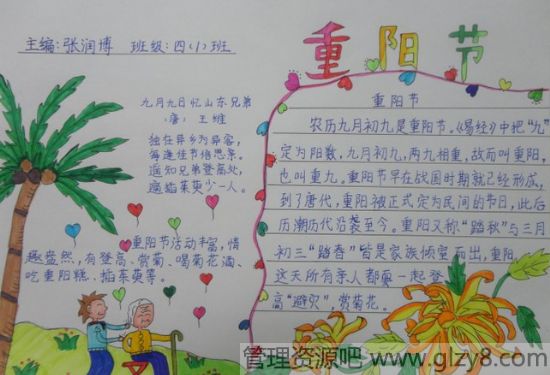 主编:张润博 班级:四(1)班
九月九日忆山东兄弟
(唐) 王维
独在异乡为异客,
每逢佳节倍思亲。
遥知兄弟登高处,
遍插茱萸少一人。
重阳节活动丰富,情
趣盎然,有登高、赏菊、喝菊花酒、
吃重阳糕、插茱萸等。
重阳节
重阳节
农历九月初九是重阳节。《易经》中把“九”
定为阳数,九月初九,两九相重,故而叫重阳,
也叫重九。重阳节早在战国时期就已经形成,
到了唐代,重阳被正式定为民间的节日,此后
历朝历代沿袭至今。重阳又称“踏秋”与三月
初三“踏春”皆是家族倾室而出,重阳
这天所有亲人都要一起登
高“避灾”赏菊花。
管理资源吧 www.glzy8.com